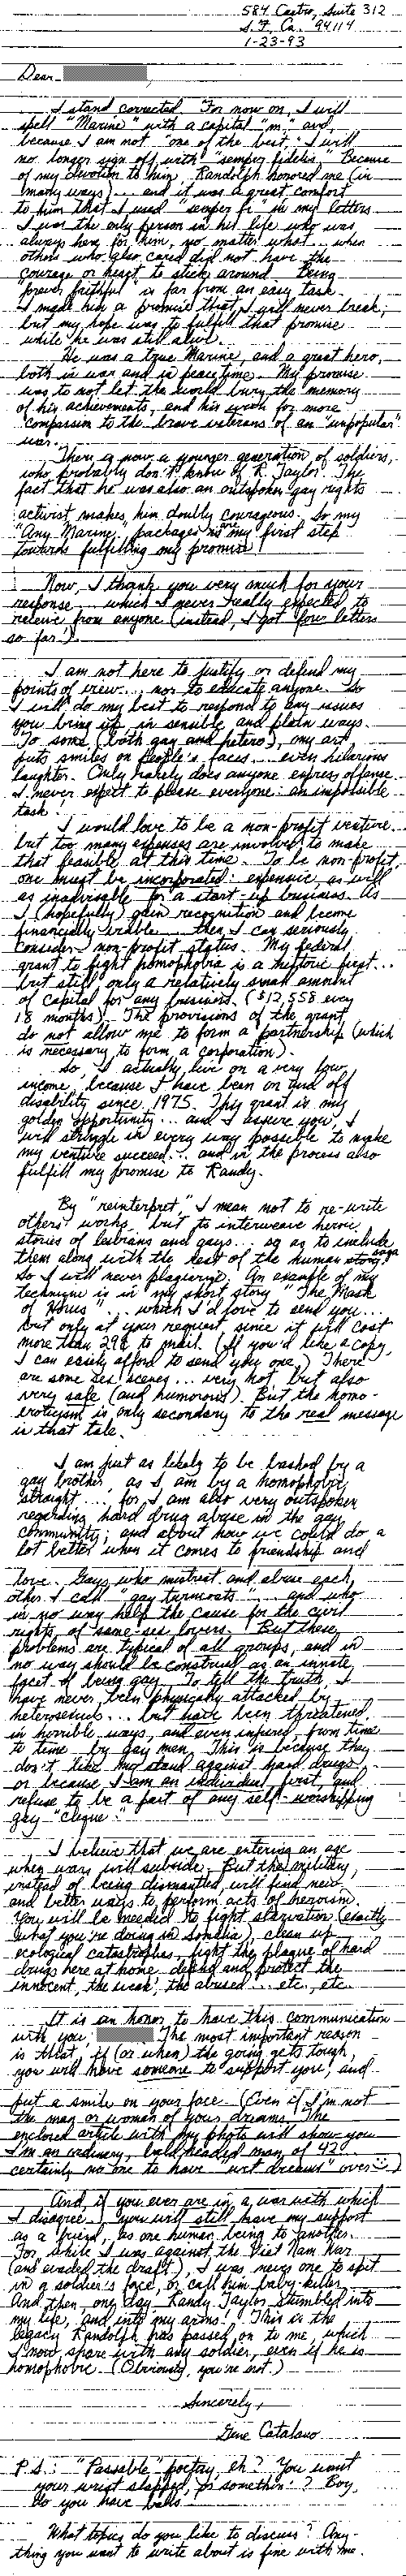 584 Castro, Suite 312
S.F., Ca. 94114
1-23-93
Dear
I stand corrected. For now on, I will
spell "Marine" with a capital "m" and,
because I am not "one of the best," I will
no longer sign off with "semper fidelis." Because
of my devotion to him, Randolph honored me (in
many ways)... and it was a great comfort
to him that I used "semper fi" in my letters.
I was the only person in his life who was
always here for him, no matter what... when
others who also cared did not have the
courage or heart to stick around. Being
"forever faithful" is far from an easy task.
I made him a promise that I will never break;
but my hope was to fulfill that promise
while he was still alive.
He was a true Marine, and a great hero,
both in war and in peacetime. My promise
was to not let the world bury the memory
of his achievements, and his wish for more
compassion to the brave veterans of an "unpopular"
war.
There is now a younger generation of soldiers,
who probably don't know of R. Taylor. The
fact that he was also an outspoken gay rights
activist makes him doubly courageous. So my
"Any Marine" packages are my first step
towards fulfilling my promise!
Now, I thank you very much for your
response... which I never really expected to
receive from anyone (instead, I got four letters
so far!).
I am not here to justify or defend my
points of view... nor to educate anyone. So
I will do my best to respond to any issues
you bring up in sensible and plain ways.
To some (both gay and hetero), my art
puts smiles on people's faces... even hilarious
laughter. Only rarely does anyone express offense.
I never expect to please everyone: an impossible
task!
I would love to be a non-profit venture...
but too many expenses are involved to make
that feasible at this time. To be non-profit,
one must be incorporated: expensive, as well
as inadvisable for a start-up business. As
I (hopefully) gain recognition and become
financially viable... then I can seriously
consider non-profit status. My federal
grant to fight homophobia is a historic first...
but still, only a relatively small amount
of capital for any business. ($12,558 every
18 months). The provisions of the grant
do not allow me to form a partnership (which
is necessary to form a corporation).
So, I actually live on a very low
income, because I have been on and off
disability since 1975. This grant is my
golden opportunity... and I assure you, I
will struggle in every way possible to make
my venture succeed... and in the process also
fulfill my promise to Randy.
By "reinterpret," I mean not to re-write
others' works, but to interweave heroic
stories of lesbians and gays... so as to include
them along with the rest of the human saga
So I will never plagiarize. An example of my
technique is in my short story "The Mask
of Horus"... which I'd love to send you...
but only at your request, since it will cost
more than 29¢ to mail. (If you'd like a copy,
I can easily afford to send you one.) There
are some sex scenes... very hot, but also
very safe (and humorous). But the homo-
eroticism is only secondary to the real message
in that tale.
I am just as likely to be bashed by a
gay brother, as I am by a homophobic
straight... for I am also very outspoken
regarding hard drug abuse in the gay
community; and about how we could do a
lot better when it comes to friendship and
love. Gays who mistreat and abuse each
other I call "gay turncoats"... and who
in no way help the cause for the civil
rights of same-sex lovers. But these
problems are typical of all groups, and in
no way should be construed as an innate
facet of being gay. To tell the truth, I
have never been physically attacked by
heterosexuals... but have been threatened
in horrible ways, and even injured, from time
to time by gay men. This is because they
don't like my stand against hard drugs,
or because I am an individual, first, and
refuse to be a part of any self-worshipping
gay "clique."
I believe that we are entering an age
when wars will subside. But the military,
instead of being dismantled, will find new
and better ways to perform acts of heroism.
You will be needed to fight starvation (exactly
what you're doing in Somalia), clean up
ecological catastrophes, fight the plague of hard
drugs here at home, defend and protect the
innocent, the weak, the abused... etc., etc.
It is an honor to have this communication
with you The most important reason
is that, if (or when) the going gets tough,
you will have someone to support you, and
put a smile on your face. (Even if I'm not
the man or woman of your dreams! The
enclosed article with my photo will show you
I'm an ordinary, bald headed man of 42...
certainly no one to have "wet dreams" over ☺.)
And if you ever are in a war with which
I disagree, you will still have my support
as a friend, as one human being to another.
For while I was against the Viet Nam War
(and evaded the draft), I was never one to spit
in a soldier's face, or call him baby-killer.
And then, one day Randy Taylor stumbled into
my life, and into my arms! This is the
legacy Randolph has passed on to me, which
I now share with any soldier, even if he is
homophobic. (Obviously, you're not.)
Sincerely,
Gene Catalano
P.S.: "Passable" poetry, eh? You want
your wrist slapped, or somethin'? Boy,
do you have balls!
What topics do you like to discuss? Any-
thing you want to write about is fine with me.